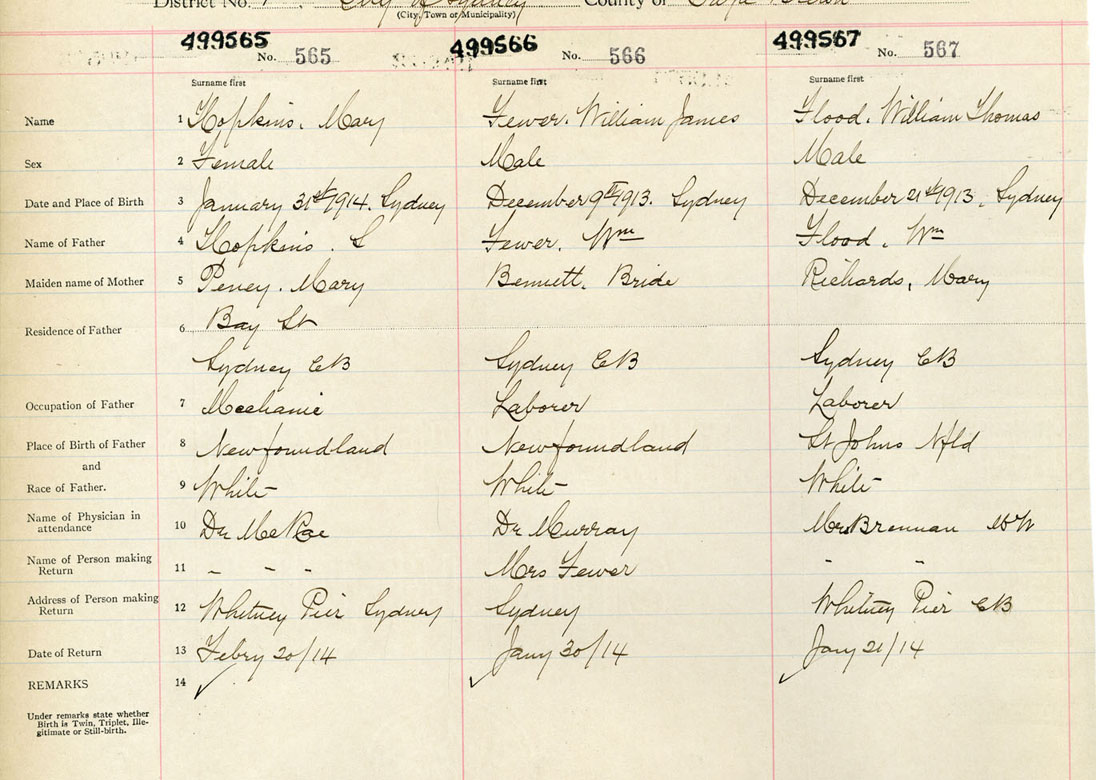 District No. 7 City of Sydney County of Cape Breton
(City, Town or Municipality)
499565 499566 499567
No. 565 No. 566 No. 567
Surname first Surname first Surname first
Name 1 Hopkins. Mary Fewer. William James Flood. William Thomas
Sex 2 Female Male Male
Date and Place of Birth 3 January 31st 1914. Sydney December 9th 1913. Sydney December 21st 1913. Sydney
Name of Father 4 Hopkins. S Fewer. Wm Flood. Wm
Maiden name of Mother 5 Peney. Mary Bennett. Bride Richards, Mary
Residence of Father 6 Bay St
Sydney CB Sydney CB Sydney CB
Occupation of Father 7 Mechanic Laborer Laborer
Place of Birth of Father 8 Newfoundland Newfoundland St Johns Nfld
and
Race of Father. 9 White White White
Name of Physician in attendance 10 Dr McRae Dr Murray Mrs Brennan
Name of Person making Return 11 - - - Mrs Fewer - -
Address of Person making Return 12 Whitney Pier Sydney Sydney Whitney Pier CB
Date of Return 13 Febry 20/14 Jany 30/14 Jany 21/14
REMARKS 14 ✓ ✓ ✓
Under remarks state whether
Birth is Twin, Triplet, Ille-
gitimate or Still-birth.